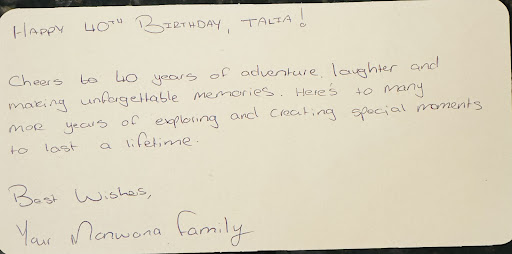 HAPPY 40TH BIRTHDAY, TALIA!
Cheers to 40 years of adventure, laughter and
making unforgettable memories. Here's to many
more years of exploring and creating special moments
to last a lifetime.
Best Wishes,
Your Manwana Family